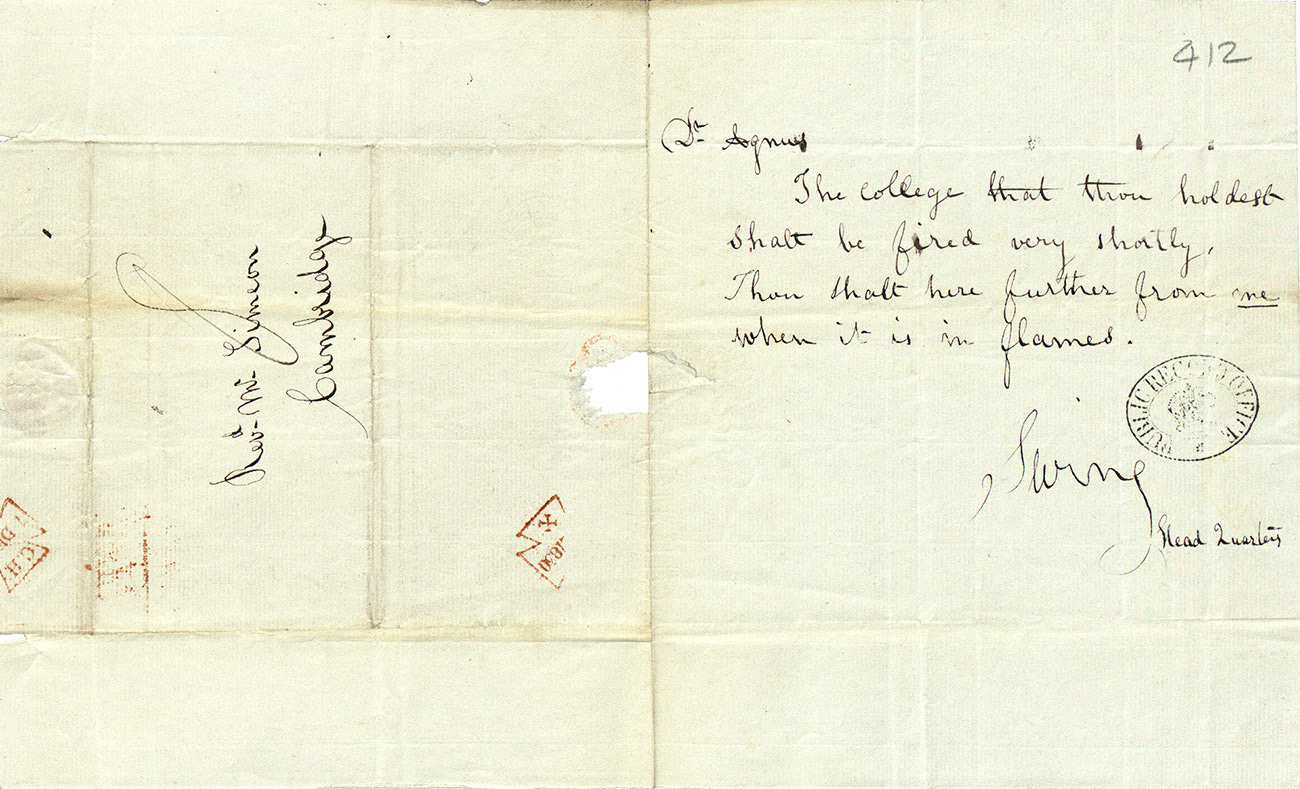 Revd. Mr. Simeon
Cambridge
1830
412
Dr. Agnus
The college that thou holdest
shalt be fired very shortly,
Thou shalt here further from me
when it is in flames.
Swing
Head Quarters
PUBLIC RECORD OFFICE